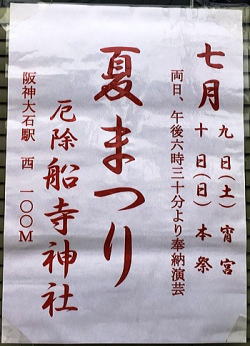 七月
九日(土)宵宮
十日(日)本祭
両日、午後六時三十分より奉納演芸
夏まつり
厄除船寺神社
阪神大石駅 西 一〇〇M